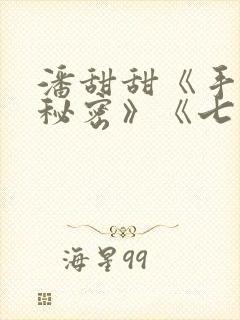 潘甜甜《手
秘密》《七
海星99